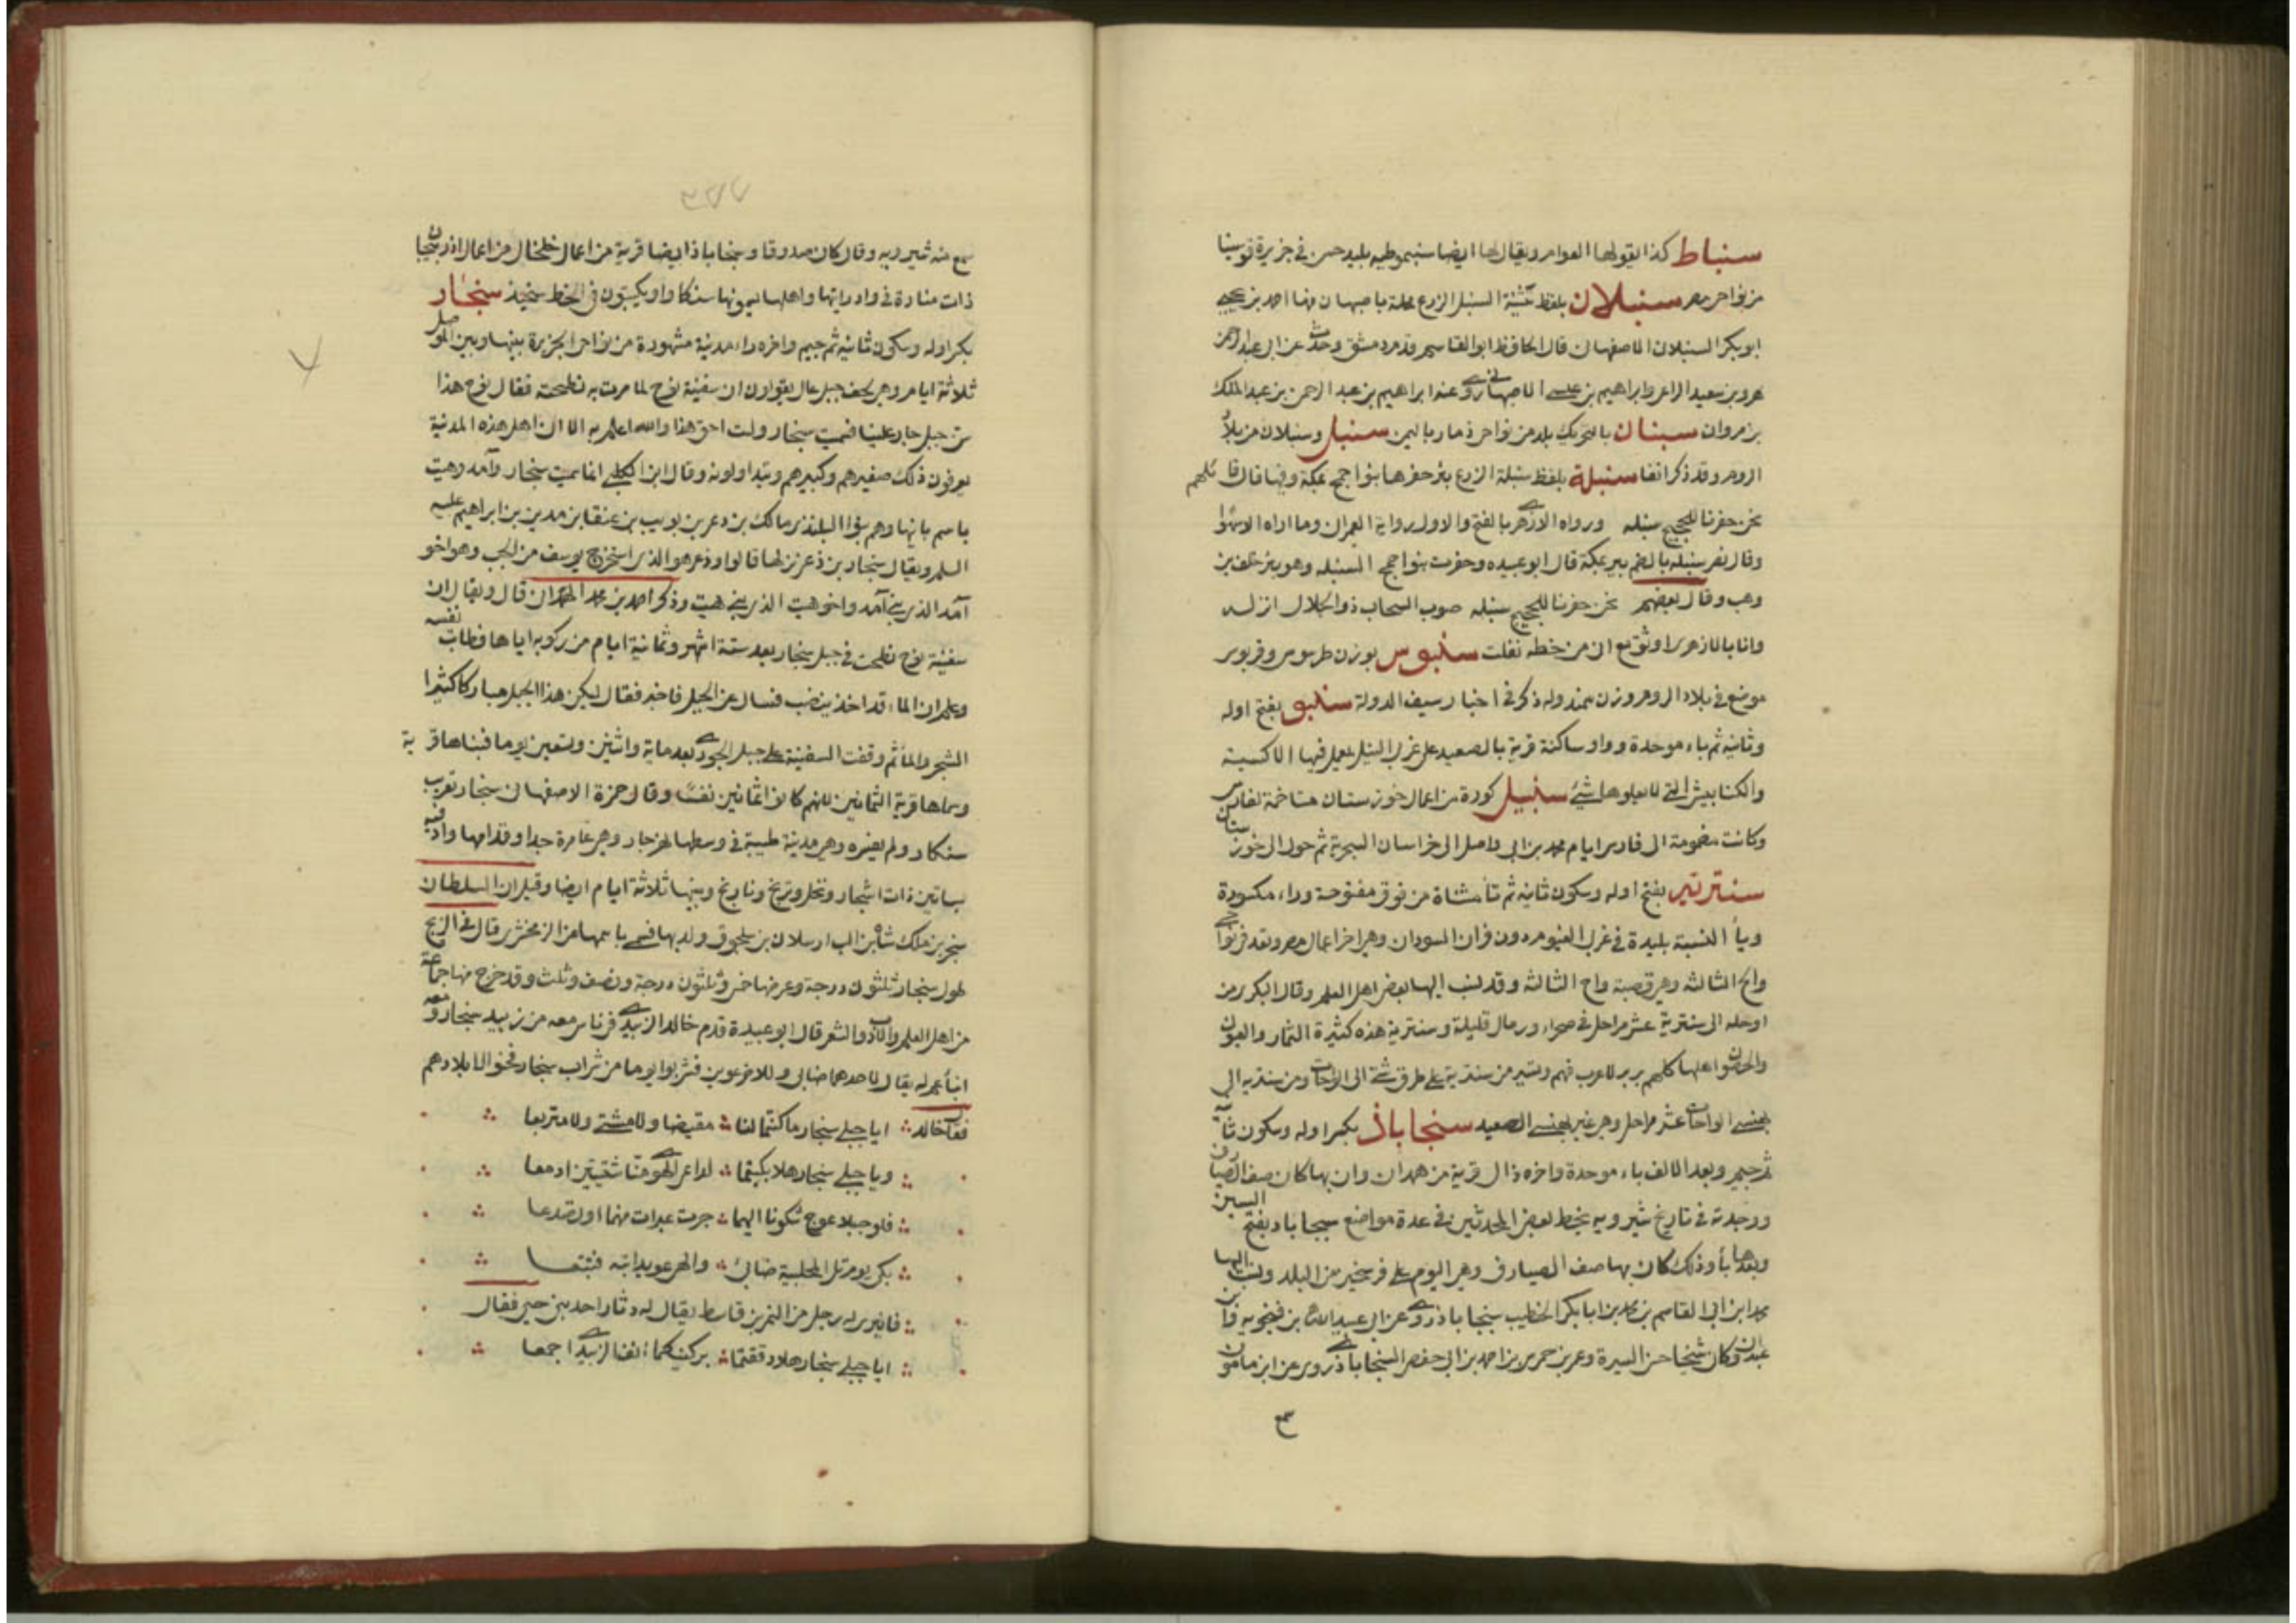 سنباط كذا يقولها العوام ويقال لها ايضا سنبموطيه بليد حسن في جزيرة قوسينا
من نواحي مصر سنبلان بلفظ تثنية السنبل الزرع محلة باصبهان منها احمد بن يحيى
ابو بكر السنبلاني الاصفهاني قال الحافظ ابو القاسم قدم دمشق وحدث عن ابي عبد الرحمن
هرو بن سعيد الراعي وابراهيم بن عيسى الاصبهاني روى عنه ابراهيم بن عبد الرحمن بن عبد الملك
بن مروان سبنان بالتحريك بلد من نواحي ذمار باليمن سنبل وسنبلان من بلاد
الروم وقد ذكر انفا سنبلة بلفظ سنبلة الزرع بئر حفرها بنو جمح بمكة وفيها قال قائلهم
نحن حفرنا للحجيج سنبله ورواه الازهري بالفتح والاول رواية العمراني وما اراه الا سهوا
وقال نصر سنبله بالضم بير بمكة قال ابو عبيده وحفرت بنو جمح السنبله وهو بئر خلف بن
وهب وقال بعضهم نحن حفرنا للحجيج سنبله صوب السحاب ذو الجلال انزله
وانا بالازهري اوثق مع اني من خطه نقلت سنبوس بوزن طرسوس وقربوس
موضع في بلاد الروم وزن سمندو له ذكر في اخبار سيف الدولة سنبو بفتح اوله
وثانيه ثم باء موحدة وواو ساكنة قرية بالصعيد على غربي النيل يعمل فيها الاكسية
والكنابيش التي لا يعلوها شئ سنبيل كورة من اعمال خوزستان متاخمة لفارس
وكانت مضمومة الى فارس ايام محمد بن ابي واصل الى خراسان السجزية ثم حول الى خوزستان
سنترتير بفتح اوله وسكون ثانيه ثم تا مثناة من فوق مفتوحة وراء مكسورة
ويا النسبة بليدة في غربي الفيوم دون فزان السودان وهي اخر اعمال مصر وتعد في نواحي
واح الثالثه وهي قصبة واح الثالثة وقد نسب اليها بعض اهل العلم وقال البكري من
اوحله الى سنترية عشر مراحل في صحراء ورمال قليلة وسنترية هذه كثيرة الثمار والعيون
والحصون اهلها كلهم بربر لا عرب فيهم وتسير من سنترية على طرق شتى الى الواحات ومن سنتريه الى
بهنسى الواحات عشر مراحل وهي غير بهنسى الصعيد سنجاباذ بكسر اوله وسكون ثانيه
ثم جيم وبعد الالف باء موحدة واخره ذال قرية من همدان وان بها كان صف الصيارف
ووجدته في تاريخ شيرويه بخط بعض المحدثين في عدة مواضع سبجاباد بفتح السين
وبعدها باء وذلك كان بها صف الصيارف وهي اليوم على فرسخين من البلد ونسب اليها
محمد ابن ابي القاسم بن محمد بن ابا بكر الخطيب سنجاباذ روى عن ابي عبيد الله بن فنجويه وابن
عبدان وكان شيخا حسن السيرة وعمر بن حمرير بن احمد بن ابي حفص السنجاباذي روى عن ابن مامون
٣
سمع منه شيرويه وقال كان صدوقا وسنجاباذ ايضا قرية من اعمال خلخال من اعمال اذربيجان
ذات منارة في واد رايتها واهلها يسمونها سنكاواو يكتبون في الخط سنجبذ سنجار
بكسر اوله وسكون ثانيه ثم جيم واخره راء مدينة مشهورة من نواحي الجزيرة بينها وبين الموصل
ثلاثة ايام وهي لحف جبل عال يقولون ان سفينة نوح لما مرت به نطحته فقال نوح هذا
سن جبل جار علينا فسميت سنجار ولست احق هذا والله اعلم به الا ان اهل هذه المدنية
يعرفون ذلك صغيرهم وكبيرهم ويتداولونه وقال ابن الكلبي انما سميت سنجار وآمد وهيت
باسم بانيها وهم بنوا البلندى مالك بن دعر بن بويب بن عنقا بن مدين بن ابراهيم عليه
السلم ويقال سنجار بن ذعر نزلها قالوا وذعر هو الذي استخرج يوسف من الجب وهو اخو
آمد الذي بنى آمد واخو هيت الذي بنى هيت وذكر احمد بن محمد الهمذاني قال ويقال ان
سفينة نوح نطحت في جبل سنجار بعد ستة اشهر وثمانية ايام من ركوبه اياها فطابت نفسه
وعلم ان الماء قد اخذ ينضب فسال عن الجبل فاخبر فقال ليكن هذا الجبل مباركا كثير
الشجر والماء ثم وقفت السفينة على جبل الجودي بعد ماية واثنين وتسعين يوما فبناها قرية
وسماها قرية الثمانين لانهم كانوا ثمانين نفسًا وقال حمزة الاصفهاني سنجار تعريب
سنكار ولم يفسره وهي مدينة طيبة في وسطها نهر جار وهي عامرة جدا وقدامها واد فيه
بساتين ذات اشجار ونخل وترنج ونارنج وبينها ثلاثة ايام ايضا وقيل ان السلطان
سنجر بن ملك شاه بن الب ارسلان بن سلجوق ولد بها فسمي باسمها عن الزمخشري قال في الزيج
طول سنجار ثلثون درجة وعرضها خمس وثلثون درجة ونصف وثلث وقد خرج منها جماعة
من اهل العلم والادب والشعر قال ابو عبيدة قدم خالد الزبيدي في ناس معه من زبيد سنجار ومعه
ابنا عم له يقال لاحدهما ضابي وللاخر عوين فشربوا يوما من شراب سنجار فحنوا الى بلادهم
فقال خالد ∴ ايا جبلي سنجار ما كنتما لنا ∴ مقيضا ولا مشتى ولا متربعا ∴
∴ ويا جبلي سنجار هلا بكيتما ∴ لداعي الهوى منا شتيتين ادمعا ∴
∴ فلو جبلا عوج شكونا اليهما ∴ جرت عبرات منهما او تصدعا ∴
∴ بكى يوم تل المحلبية ضابئ ∴ والهى عويدا بثه فتقنعا ∴
∴ فانبرى له رجل من النمر بن قاسط يقال له دثار احد بني حيي فقال
∴ ايا جبلي سنجار هلا دققتما ∴ بركنيكما انف الزبيدي اجمعا ∴